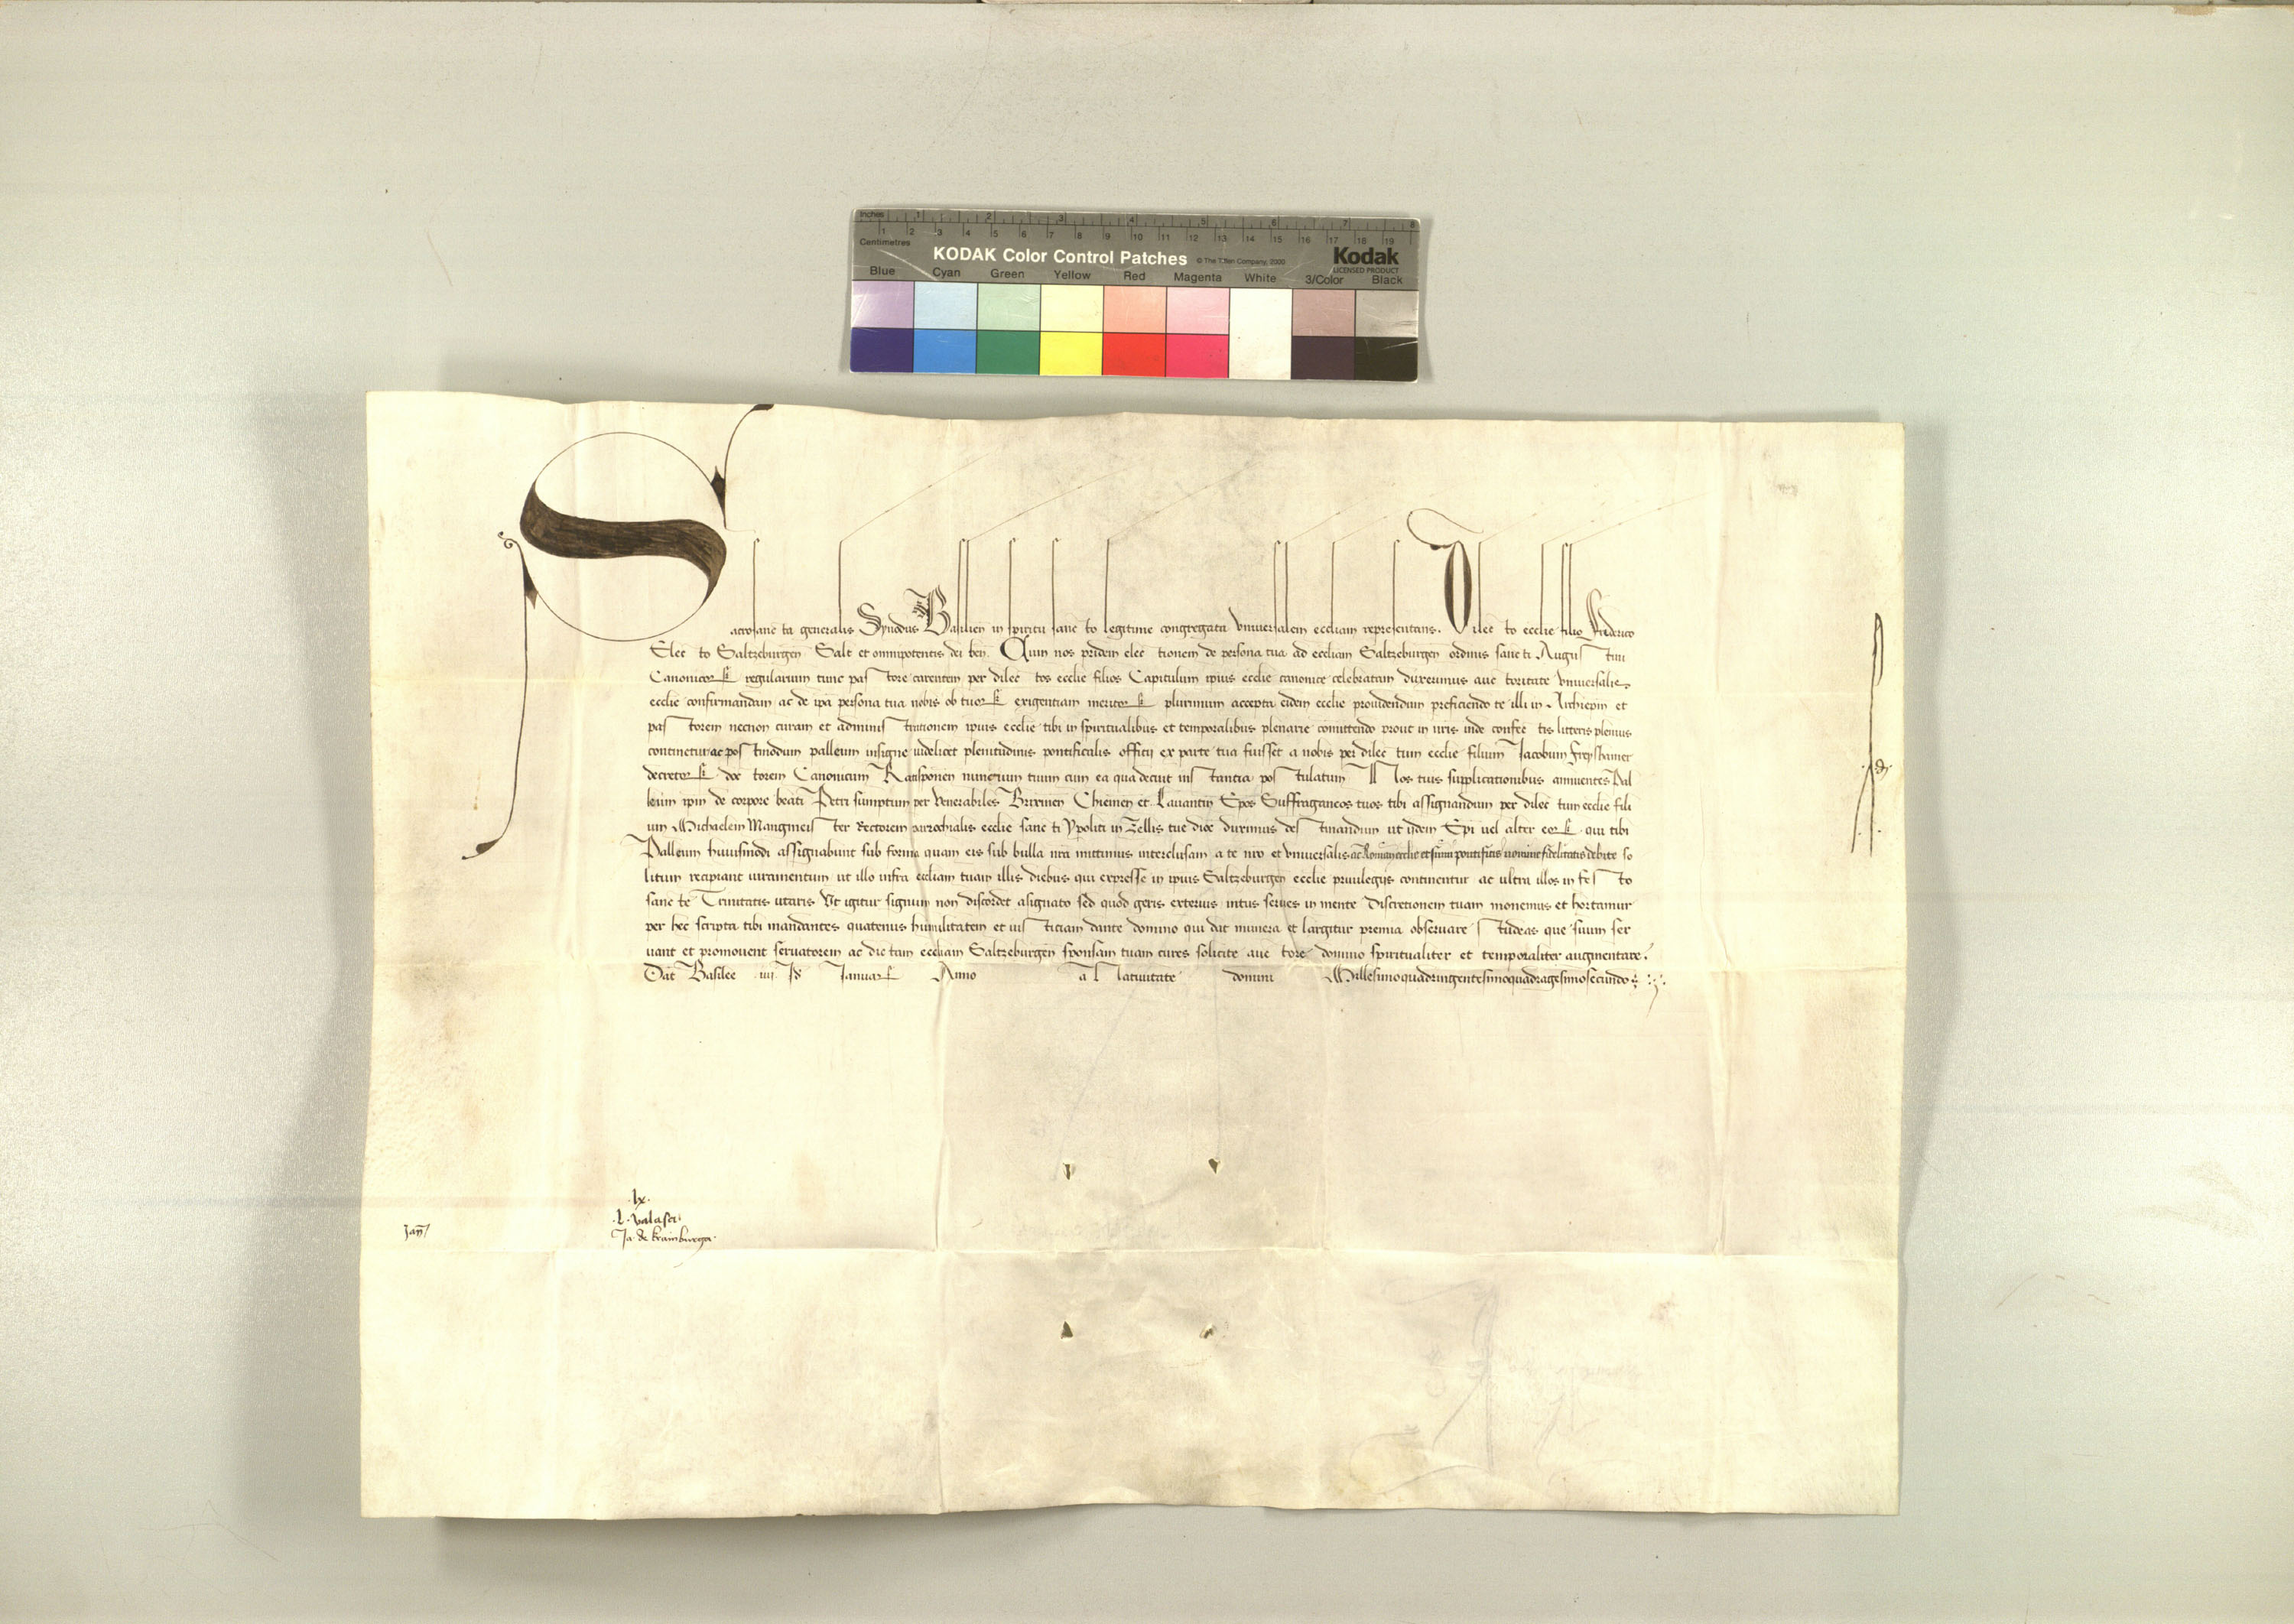 Inches 1 2 3 4 5 6 7 8
Centimetres 1 2 3 4 5 6 7 8 9 10 11 12 13 14 15 16 17 18 19
KODAK Color Control Patches © The Tiffen Company, 2000 Kodak
LICENSED PRODUCT
Blue Cyan Green Yellow Red Magenta White 3/Color Black
Sacrosancta generalis Synodus Basilien in spiritu sancto legitime congregata vniuersalem eccliam representans. Dilecto ecclie filio Friderico
Electo Saltzeburgen Salt et omnipotentis dei ben. Cum nos pridem electionem de persona tua ad eccliam Saltzeburgen ordinis sancti Augustini
Canonicor regularium tunc pastore carentem per dilectos ecclie filios Capitulum ipius ecclie canonice celebratam duxerimus auctoritate vniuersalis
ecclie confirmandam ac de ipa persona tua nobis ob tuor exigentiam meritor plurimum accepta eidem ecclie prouidendum preficiendo te illi in Archiepm et
pastorem necnon curam et administrationem ipius ecclie tibi in spiritualibus et temporalibus plenarie comittendo prout in nris inde confectis litteris plenius
continetur ac postmodum palleum insigne videlicet plenitudinis pontificalis officij ex parte tua fuisset a nobis per dilectum ecclie filium Jacobum
decretor doctorem Canonicum Ratisponen nuncium tuum cum ea qua decuit instantia postulatum Nos tuis supplicationibus annuentes Pal
leum ipm de corpore beati Petri sumptum per Venerabiles Brixinen Chiemen et Lauantin Epos Suffraganeos tuos tibi assignandum per dilectum ecclie fili
um Michaelem Mangmeister Rectorem parrochialis ecclie sancti Ypoliti in Zellis tue dioc duximus destinandum ut ijdem Epi uel alter eor qui tibi
Palleum huiusmodi assignabunt sub forma quam eis sub bulla nra mittimus interclusam a te nro et vniuersalis ac Romane ecclie et summi pontificis nomine fidelitatis debite so
litum recipiant iuramentum ut illo infra eccliam tuam illis diebus qui expresse in ipius Saltzeburgen ecclie priuilegijs continentur ac ultra illos in festo
sancte Trinitatis utaris Vt igitur signum non discordet asignato sed quod geris exterius intus serues in mente Discretionem tuam monemus et hortamur
per hec scripta tibi mandantes quatenus humilitatem et iusticiam dante domino qui dat munera et largitur premia obseruare studeas que suum ser
uant et promouent seruatorem ac dictam eccliam Saltzeburgen sponsam tuam cures solicite auctore domino spiritualiter et temporaliter augmentare.
Dat Basilee iiij Id Januar Anno a Natiuitate domini Millesimoquadringentesimoquadragesimosecundo
lx.
Ja de